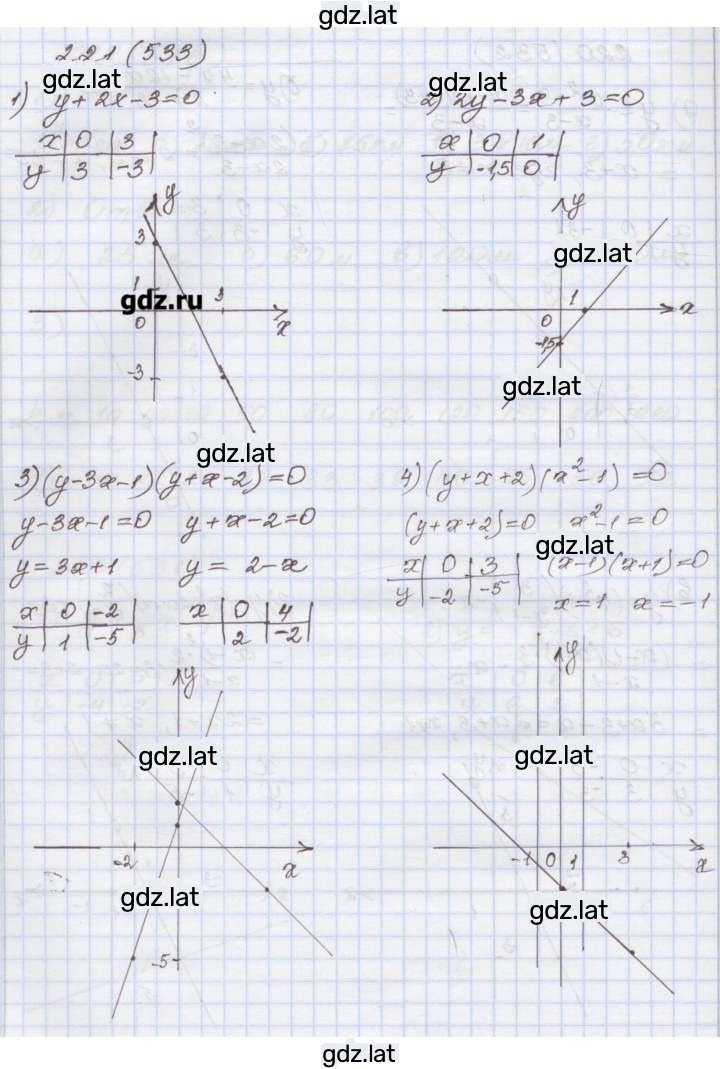 gdz.lat
221 (533)
gdz.lat
1) y+2x-3=0
x | 0 | 3
y | 3 | -3
y
3
1
gdz.ru
0
3
x
-3
gdz.lat
2) 2y-3x+3=0
x | 0 | 1
y | -1,5 | 0
y
gdz.lat
1
0
x
-1,5
gdz.lat
gdz.lat
3) (y-3x-1)(y+x-2)=0
y-3x-1=0 y+x-2=0
y=3x+1 y= 2-x
x | 0 | -2
y | 1 | -5
x | 0 | 4
2 | -2
y
gdz.lat
-2
x
gdz.lat
-5
4) (y+x+2)(x²-1)=0
(y+x+2)=0 x²-1=0
gdz.lat
x | 0 | 3
y | -2 | -5
(x-1)(x+1)=0
x=1 x=-1
y
gdz.lat
-1 0 1 3
x
gdz.lat
gdz.lat